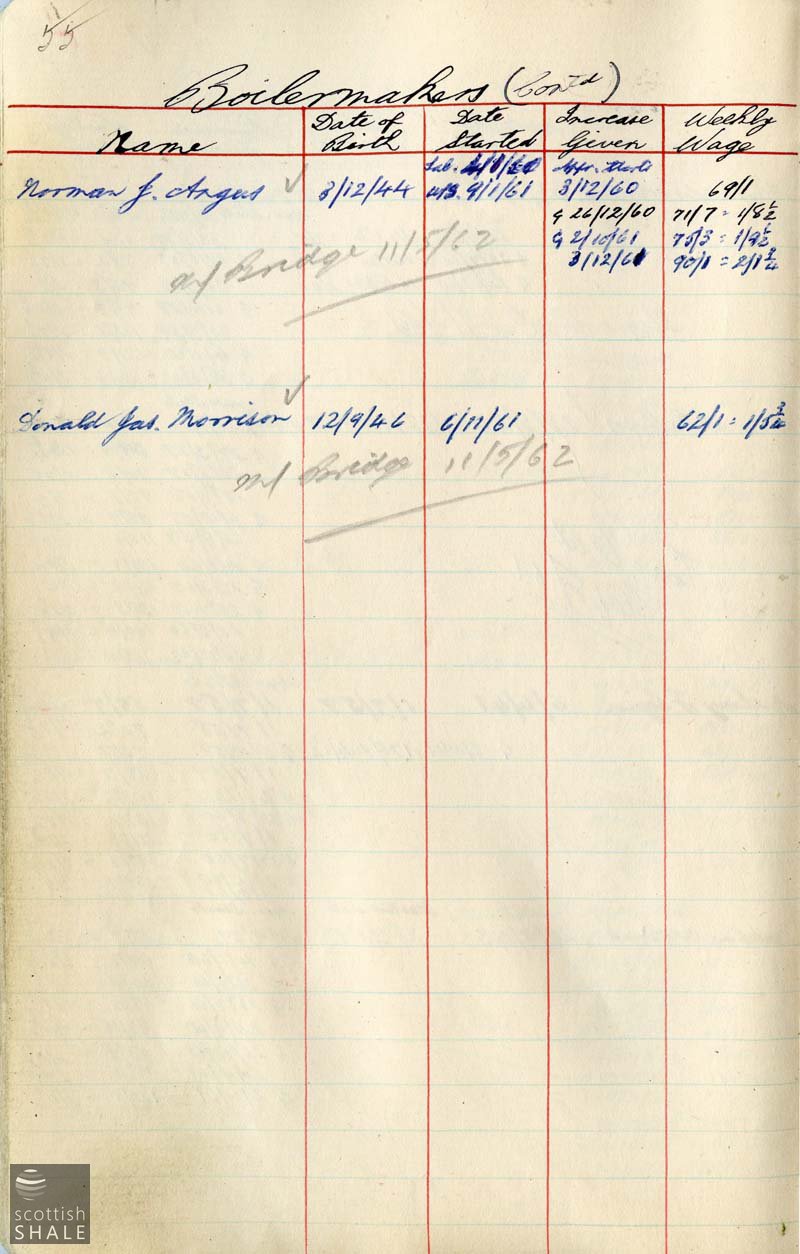 55
Boilermakers (Contd)
Name Date of Birth Date Started Increase Given Weekly Wage
Lab.
Norman J. Angus 3/12/44 9/1/61 3/12/60 69/1
G 26/12/60 71/7 = 1/8½
G 2/10/61 75/3 = 1/9½
3/12/61 90/1 = 2/1¾
Bridge 11/5/62
Donald Jas. Morrison 12/9/46 6/11/61 62/1 = 1/5¾
Bridge 11/5/62
scottish
SHALE